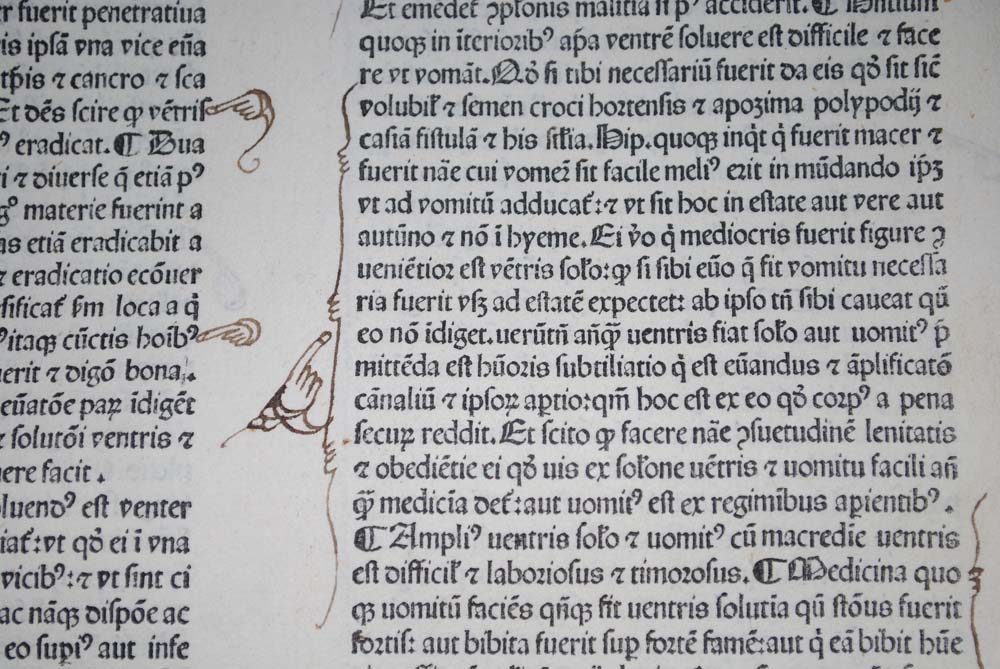 r fuerit penetratiua
is ipſã vna vice eũa
tp̃is ⁊ cancro ⁊ ſca
Et deẽs ſcire ꝙ vẽtriſ
ꝰ eradicat. ¶ Dua
i ⁊ diuerſe q̃ etiã pꝰ
materie fuerint a
as etiã eradicabit a
⁊ eradicatio ecõuer
ſificat̃ ẜm loca a q̃
itaqꝫ cũctis hoĩbꝰ
erit ⁊ digõ bona.
euatõe paꝝ ĩdigẽt
⁊ ſolutõi ventris ⁊
uere facit.
luendꝰ eſt venter
iat̃: vt qđ ei i vna
vicibꝰ: ⁊ vt ſint ci
ac nãqꝫ diſpõe ac
eo ſupiꝰ aut infe
Et emedet̃ ꝯpſonis malitia ñ pꝰ acciderit. ¶
quoqꝫ in ĩterioribꝰ ap̃a ventrẽ ſoluere eſt difficile ⁊ face
re vt vomãt. Qđ ſi tibi neceſſariũ fuerit da eis qđ ſit ſiĉ
volubił ⁊ ſemen croci hortenſis ⁊ apozima polypodij ⁊
caſiã fiſtulã ⁊ his ſiłia. Hip. quoqꝫ inq̇t q̇ fuerit macer ⁊
fuerit nãe cui vomeꝝ ſit facile meliꝰ erit in mũdando ip̃ꝫ
vt ad vomitũ adducat̃: ⁊ vt ſit hoc in eſtate aut vere aut
autũno ⁊ nõ ĩ hyeme. Ei v̊o q̇ mediocris fuerit figure ꝯ
ueniẽtior eſt vẽtris ſoło: ꝙ ſi ſibi eũo q̃ fit vomitu neceſſa
ria fuerit vſqꝫ ad eſtatẽ expectet: ab ipſo tñ ſibi caueat qũ
eo nõ ĩdiget. uerũtñ añq̃ꝫ uentris fiat ſoło aut uomitꝰ p̃
mittẽda eſt hũoris ſubtiliatio q̇ eſt eũandus ⁊ ãplificatõ
cãnaliũ ⁊ ipſoꝝ aptio: qm̃ hoc eſt ex eo qđ corpꝰ a pena
ſecuꝝ reddit. Et ſcito ꝙ facere nãe ꝯſuetudinẽ lenitatis
⁊ obediẽtie ei qđ uis ex ſołone uẽtris ⁊ uomitu facili añ
q̃ꝫ medicĩa det̃: aut uomitꝰ eſt ex regimĩbus apientibꝰ.
¶ Ampliꝰ uentris ſoło ⁊ uomitꝰ cũ macredie uentris
eſt difficił ⁊ laborioſus ⁊ timoroſus. ¶ Medicina quo
qꝫ uomitũ faciẽs qñqꝫ fit uentris ſolutĩa qũ ſtõus fuerit
fortis: aut bibita fuerit ſuꝑ fortẽ famẽ: aut q̇ eã bibit hũe